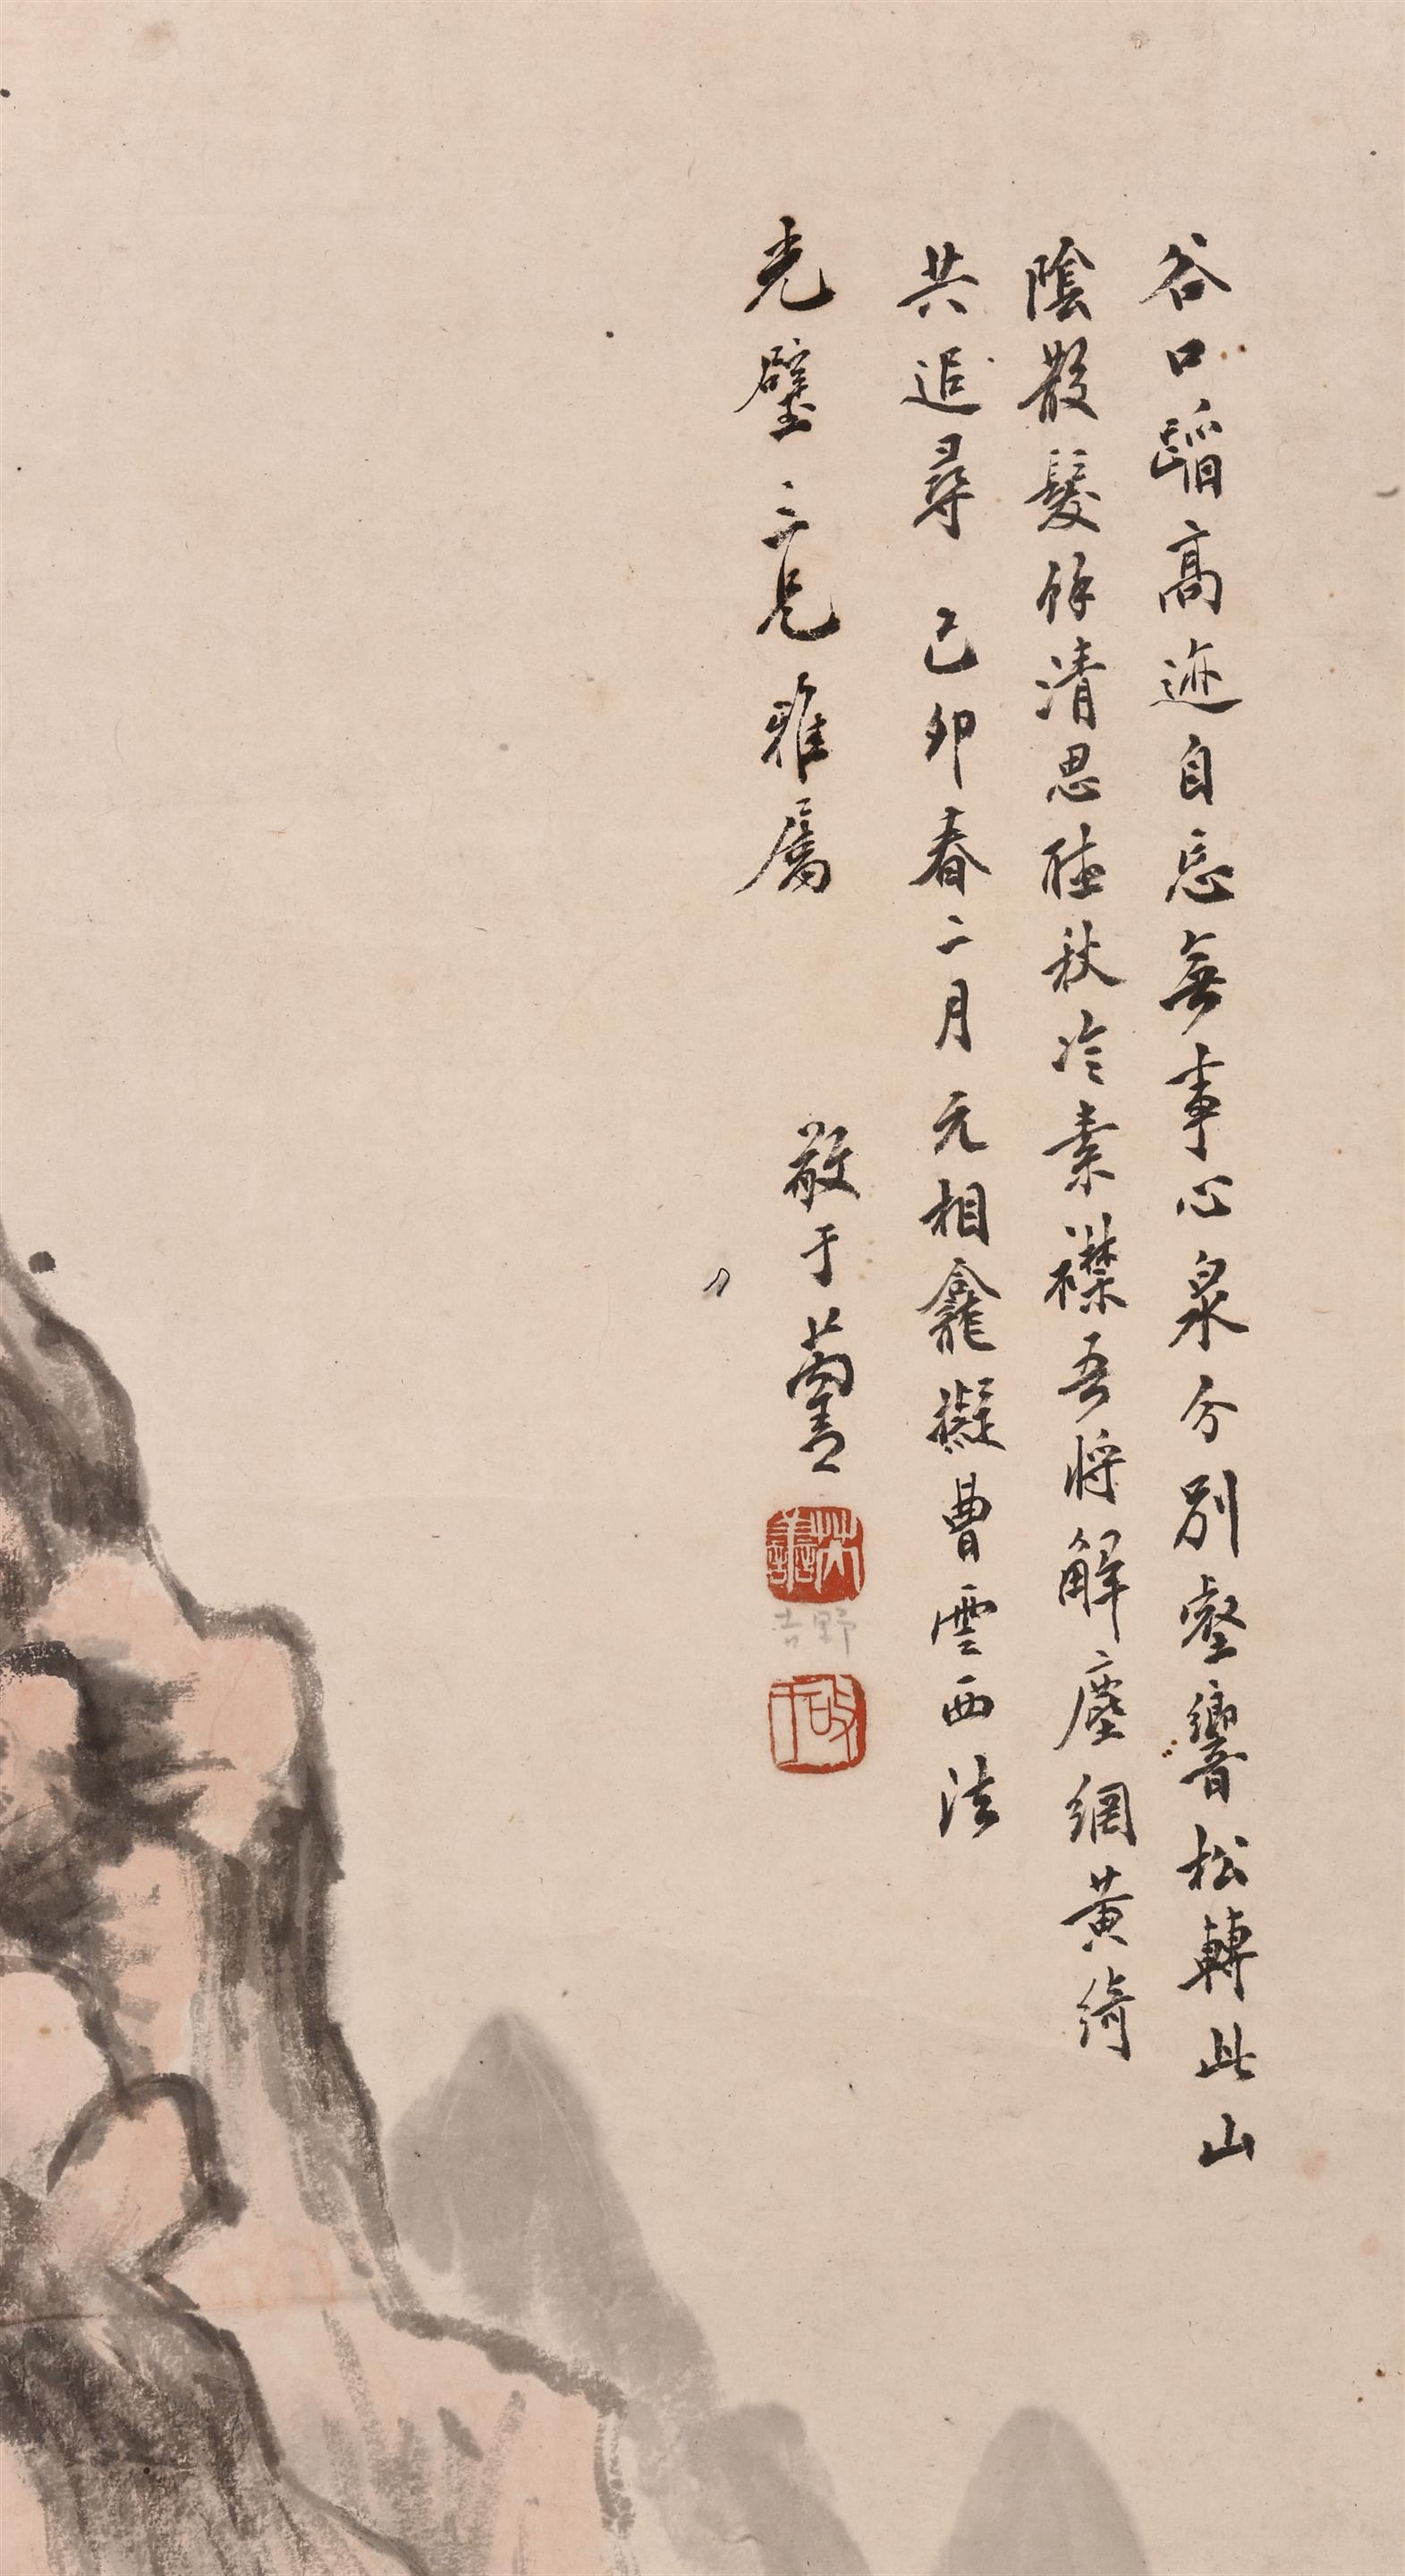 谷口蹈高迹自忘無事心泉分別壑響松轉此山
陰散髮餘清思聽秋冷素襟吾將解塵網黃綺
共追尋 己卯春二月元相龕擬曹雲西法
光璧三兄雅屬
于